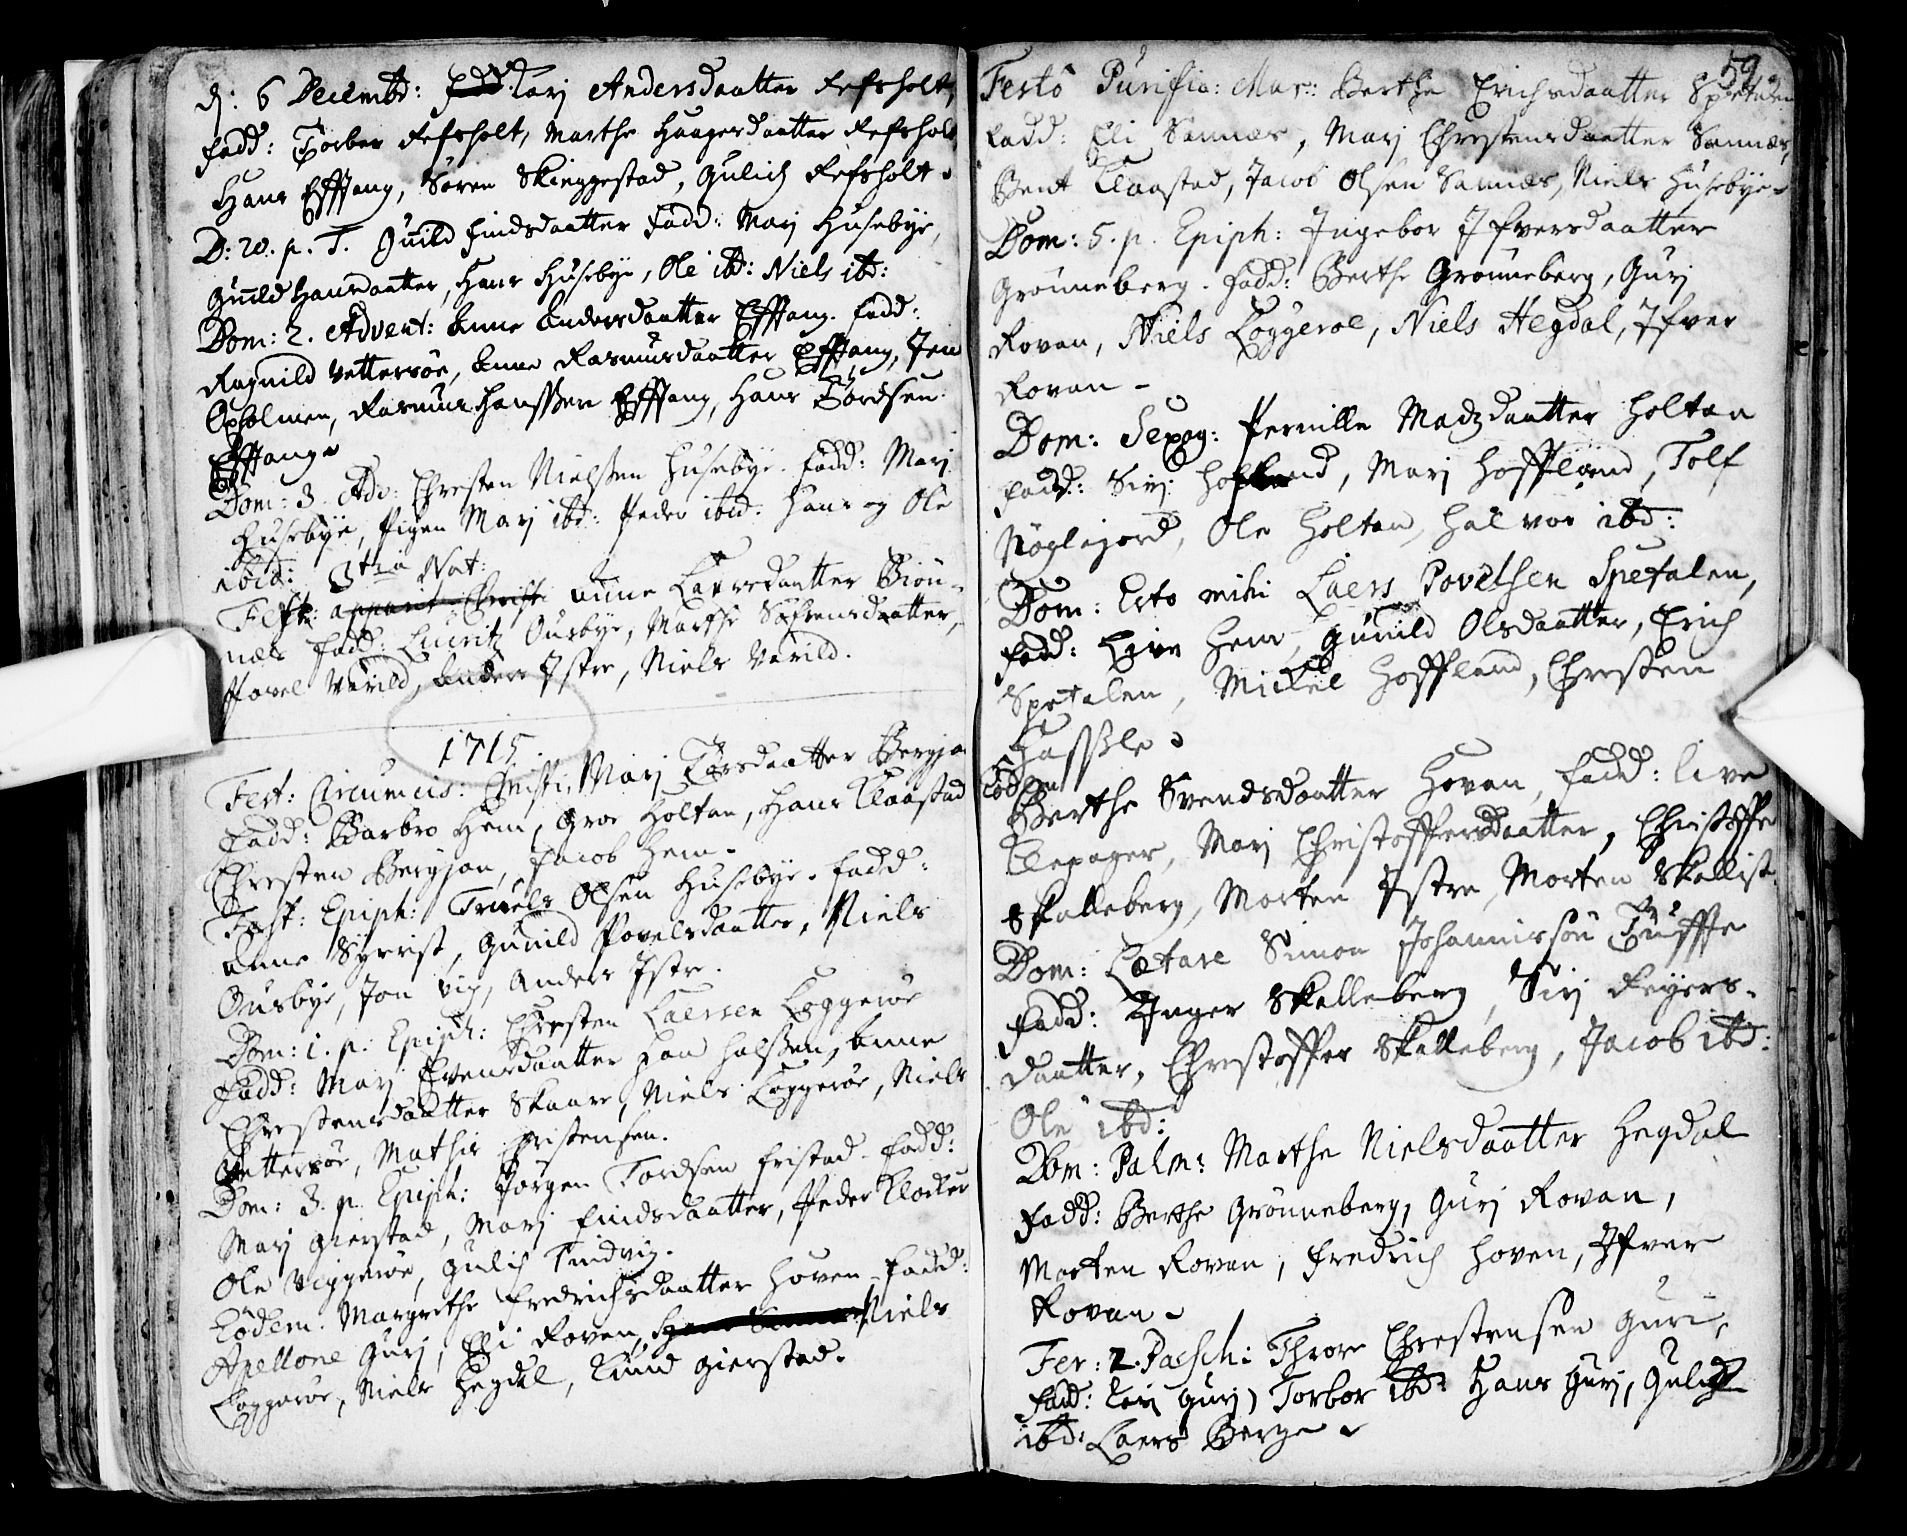 d: 6 Decembr: Kari Andersdaatter Refsholt,
fadd: Torber Refsholt, Marthe Haagersdaatter Refsholt
Hans Efftang, Sören Skieggestad, Gulich Refsholt.
D: 20. p. T. Gunild Findsdaatter fadd: Mari Husebye,
Gunild Hansdaatter, Hans Husebye, Ole ibd: Niels ibd:
Dom: 2. Advent: Anne Andersdaatter Efftang. fadd:
Ragnild Vettersöe, Anne Rasmusdaatter Efftang, Jen
Oxholmen, Rasmus Hanssen Efftang, Hans Tordsen
Efftang
Dom: 3. Adv: Christen Nielssen Husebye. fadd: Mari
Husebye, Pigen Mari ibd: Peder ibid: Hans og Ole
ibid: 3tia Nat:
Festo: Anne Lauresdaatter Biön-
næs fadd: Lauritz Ousbye, Marthe Sörensdaatter,
Povel Varild, Anders Istre, Niels Varild.
1715.
Fest: Circumcis: Christi, Mari Larsdaatter Bergan
fadd: Barbro Hem, Groe Holtan, Hans Klaastad
Christen Bergan, Jacob Hem.
Fest: Epiph: Truels Olsen Husebye. fadd:
Anne Syrrist, Gunild Povelsdaatter, Niels
Ousbye, Jon Vig, Anders Istre.
Dom: 1. p. Epiph: Christen Laersen Loggeröe
fadd: Mari Evensdaatter, Halssen, Anne
Christensdaatter Skaare, Niels Loggeröe, Niels
Vettersöe, Mathis Christensen.
Dom: 3. p. Epiph: Jörgen Tordsen fristad. fadd:
Mari Gierstad, Mari Findsdaatter, Peder Klocker
Ole Viggeröe, Gulich Tindvig.
Eodem. Margrethe Fredrichsdaatter Hoven. fadd:
Apellone Guri, Eli Roven, Niels
Loggeröe, Niels Hegdal, Knud Gierstad.
59
Festo Purific: Mar: Berthe Erichsdaatter Spetalen
fadd: Eli Sannæs, Mari Christensdaatter Sannæs,
Bent Klaastad, Jacob Olsen Sannæs, Niels Husebye.
Dom: 5. p. Epiph: Ingebor Ifversdaatter
Grönneberg. fadd: Berthe Grönneberg, Guri
Rovan, Niels Loggeroe, Niels Hegdal, Ifver
Rovan.
Dom: Sexag: Pernille Madzdaatter Holtan
fadd: Siri Hofland, Mari Hoffland, Tolf
Nöglejord, Ole Holtan, Halvor ibd:
Dom: Esto mihi Laers Povelsen Spetalen,
fadd: Live Hem, Gunild Olsdaatter, Erich
Spetalen, Mickel Hoffland, Christen
Hassle.
Eodem
Berthe Svendsdaatter Hovan, fadd: Live
Klepager, Mari Christoffersdaatter, Christoffer
Skalleberg, Morten Istre, Morten Skellist.
Dom: Lætare Simon Johannissön Tuffte
fadd: Inger Skalleberg, Siri Reyers-
daatter, Christoffer Skalleberg, Jacob ibd:
Ole ibd:
Dom: Palm: Marthe Nielsdaatter Hegdal
fadd: Berthe Grönneberg, Guri Rovan,
Morten Rovan, Fredrich Hoven, Ifver
Rovan.
Fer: 2. Pasch: Throre Christensen Guri,
fadd: Guri, Torbor ibd: Hans Guri, Gulich
ibd: Laers Berge